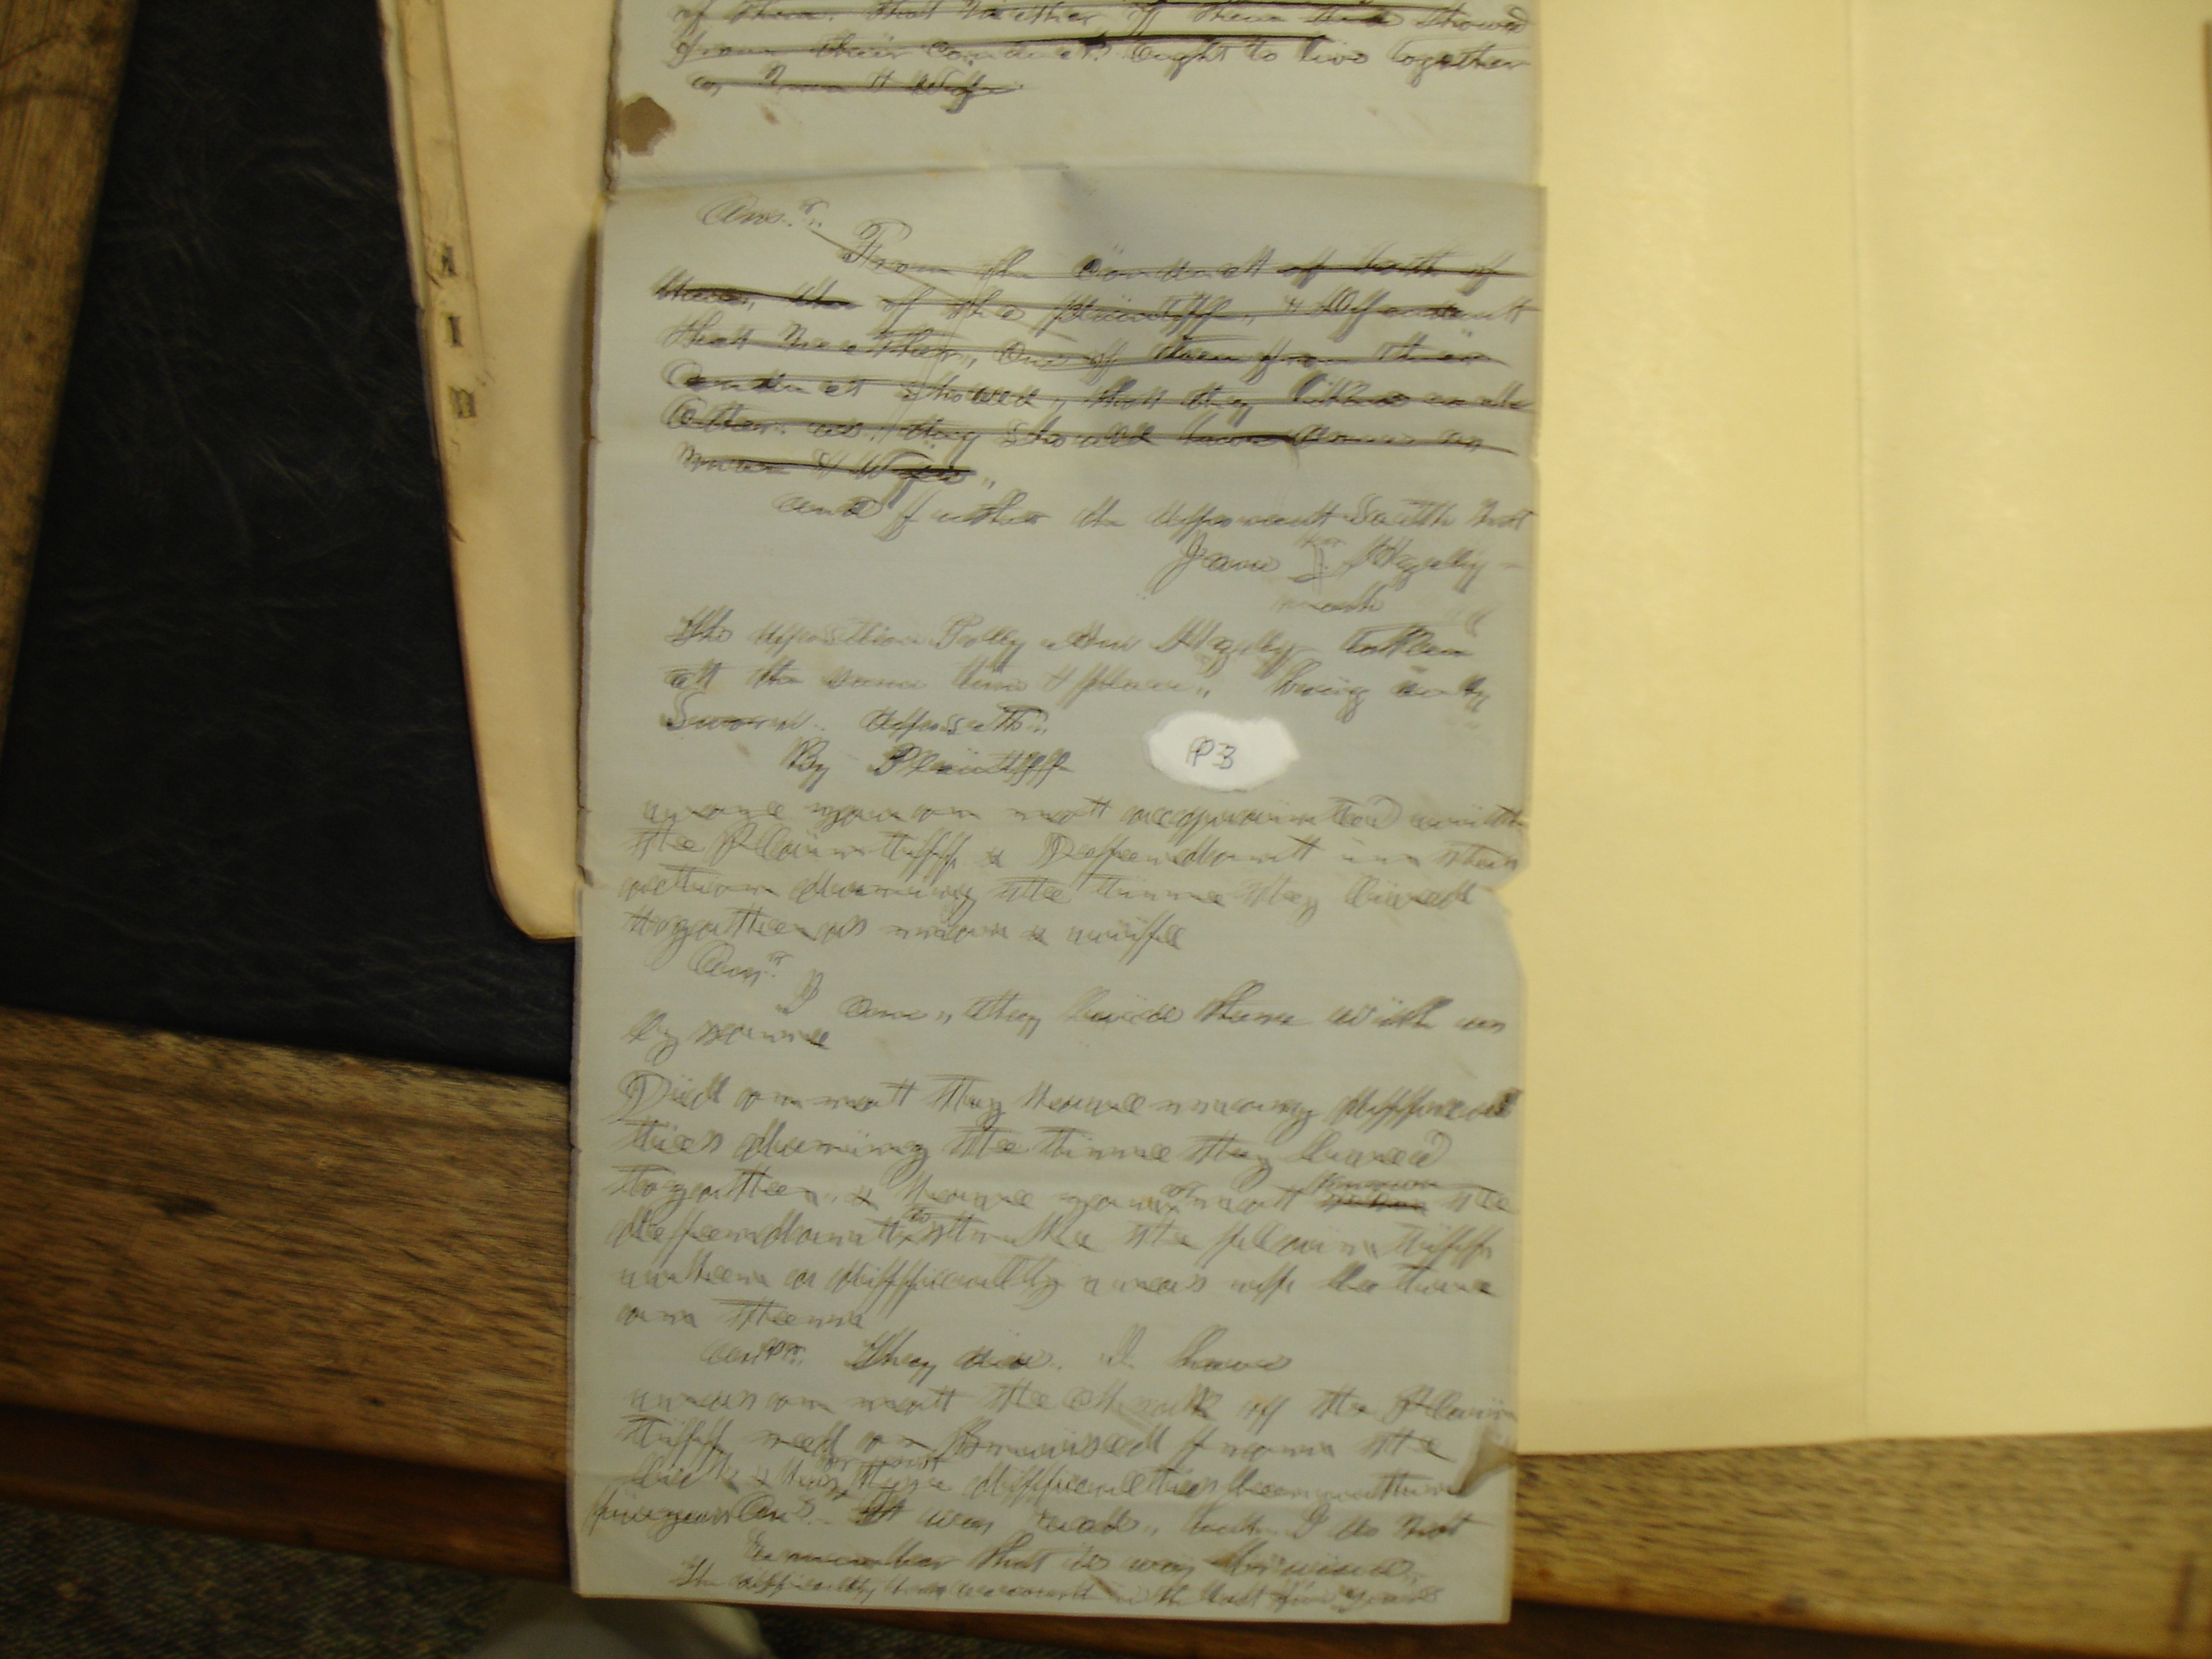 of them. that neither of them had showed
from their conduct. ought to live together
as man & Wife
Ansr.
From the Conduct of both of
them, the of the plaintiff, & Deffendent
that neather,, One of them from their
Conduct showed,, that they liked each
Other. as. they should have done as
man & Wife,,
and further the depponent Saith not
Jane her Hagaby
mark
The deposition Polly Ann Hagaby taken
att the same time & place,, being duly
Sworn.. deposeth..
By Plaintiff
ware you or nott acquainted with
the Plaintiff & Deffendant in this
action during the time they lived
together as man & wife
Ansr.
I am,, they live thare with us
by
Did or nott they have many difficul
ties during the time they lived
together,, & have you or nott known the
deffendant to strike the plaintiff
when a difficulty was up betwee
n them
ansr. They did. I have
was or nott the Cheek of the Plain
tiff red or Bruised from the
lick & has or nott these difficulties been within
five years Ansr. It was read,, but I do not
Remember that it was bruised.
The difficulty has accourd in the last five years
P3
A
I
N